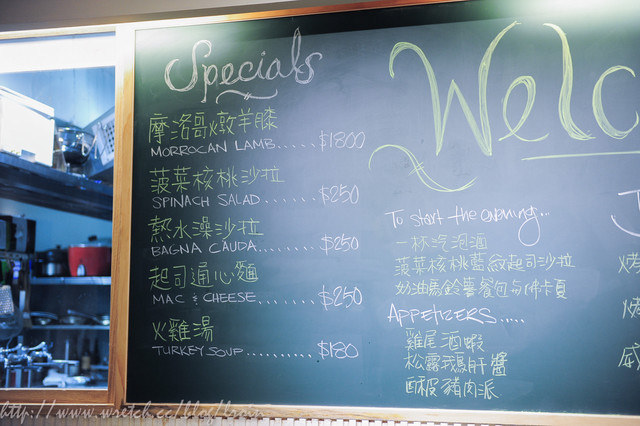 Specials
摩洛哥燉羊膝
MORROCAN LAMB......$1800
菠菜核桃沙拉
SPINACH SALAD.......$250
熱水澡沙拉
BAGNA CAUDA.........$250
起司通心麵
MAC & CHEESE........$250
火雞湯
TURKEY SOUP..........$180
Welc
To start the evening...
一杯汽泡酒
菠菜核桃藍紋起司沙拉
奶油馬鈴薯餐包与佛卡夏
APPETIZERS.....
雞尾酒蝦
松露鵝肝醬
豬肉派
烤
烤
威
http://www.wretch.cc/blog/